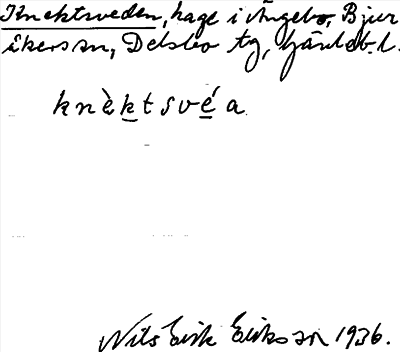 Knektsveden, hage i Ängebo, Bjur
åkers sn, Delsbo tg, Gävleb. l.
knèktsvéa
Nils Erik Eriksson 1936.